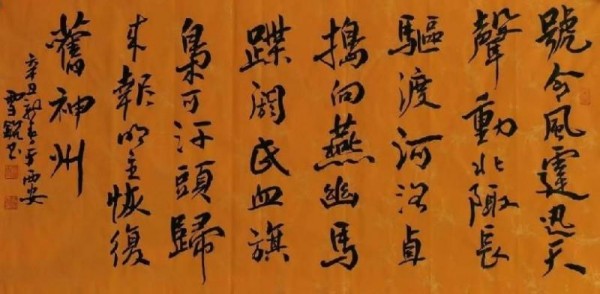 號令風霆迅天
聲動北陬長
驅渡河洛直
搗向燕幽馬
蹀閼氏血旗
梟可汗頭歸
来報明主恢復
舊神州
辛丑于西安
书